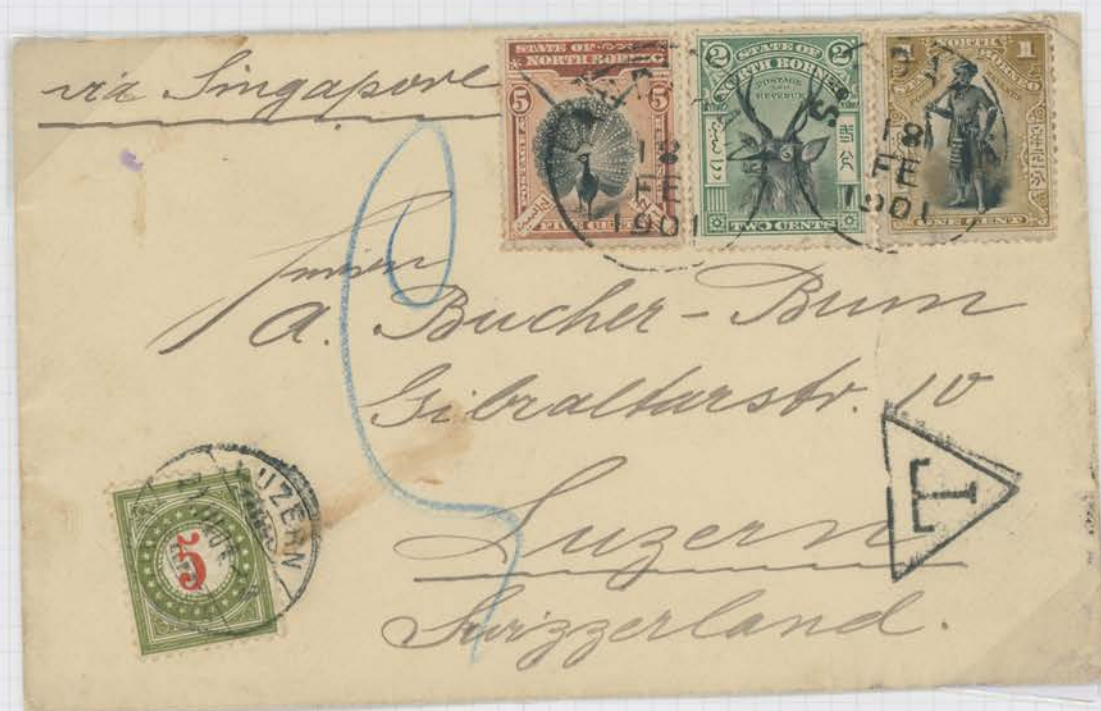 via Singapore
STATE OF
NORTH BORNEO
5 5
FIVE CENTS
2 2
STATE OF
NORTH BORNEO
POSTAGE
AND
REVENUE
TWO CENTS
NORTH
1
ONE CENT
18
FE
1901
18
FE
1901
A. Bucher-Bum
Gibraltarstr. 10
Luzern
Switzerland.
T
LUZERN
5